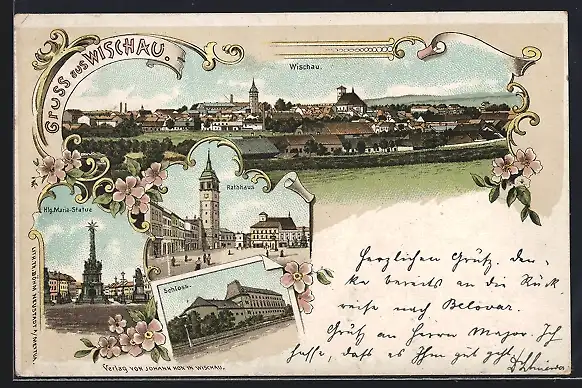 GRUSS aus WISCHAU.
Wischau.
Hlg. Maria-Statue
Rathhaus
Schloss.
LITH. TH. BÖHM, NEUSTADT A/METTAU.
Verlag VON JOHANN NON IN WISCHAU.
Herzlichen Grüß. den-
ke bereits an die Rück
reise nach Belovar.
Grüß an Herrn Major. Ich
hoffe, daß es Ihm gut geht